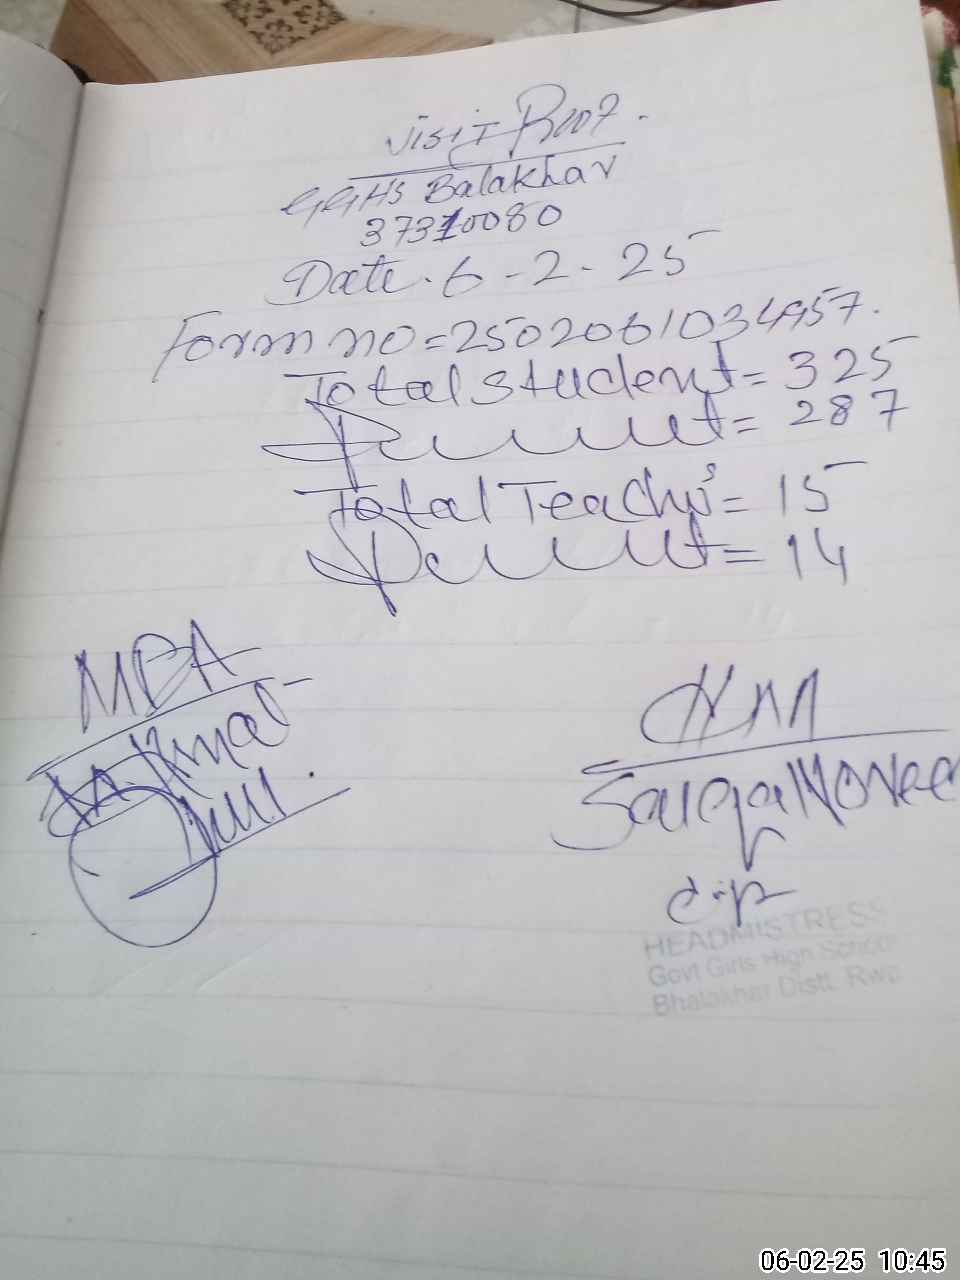 Visit Proof.
GGHS Balakhar
37310080
Date. 6-2-25
Form no = 2502061034957.
Total student = 325
Present = 287
Total Teacher's = 15
Present = 14
MEA
HM
HEADMISTRESS
Govt Girls High School
Bhalakhar Distt. Rwp
06-02-25 10:45